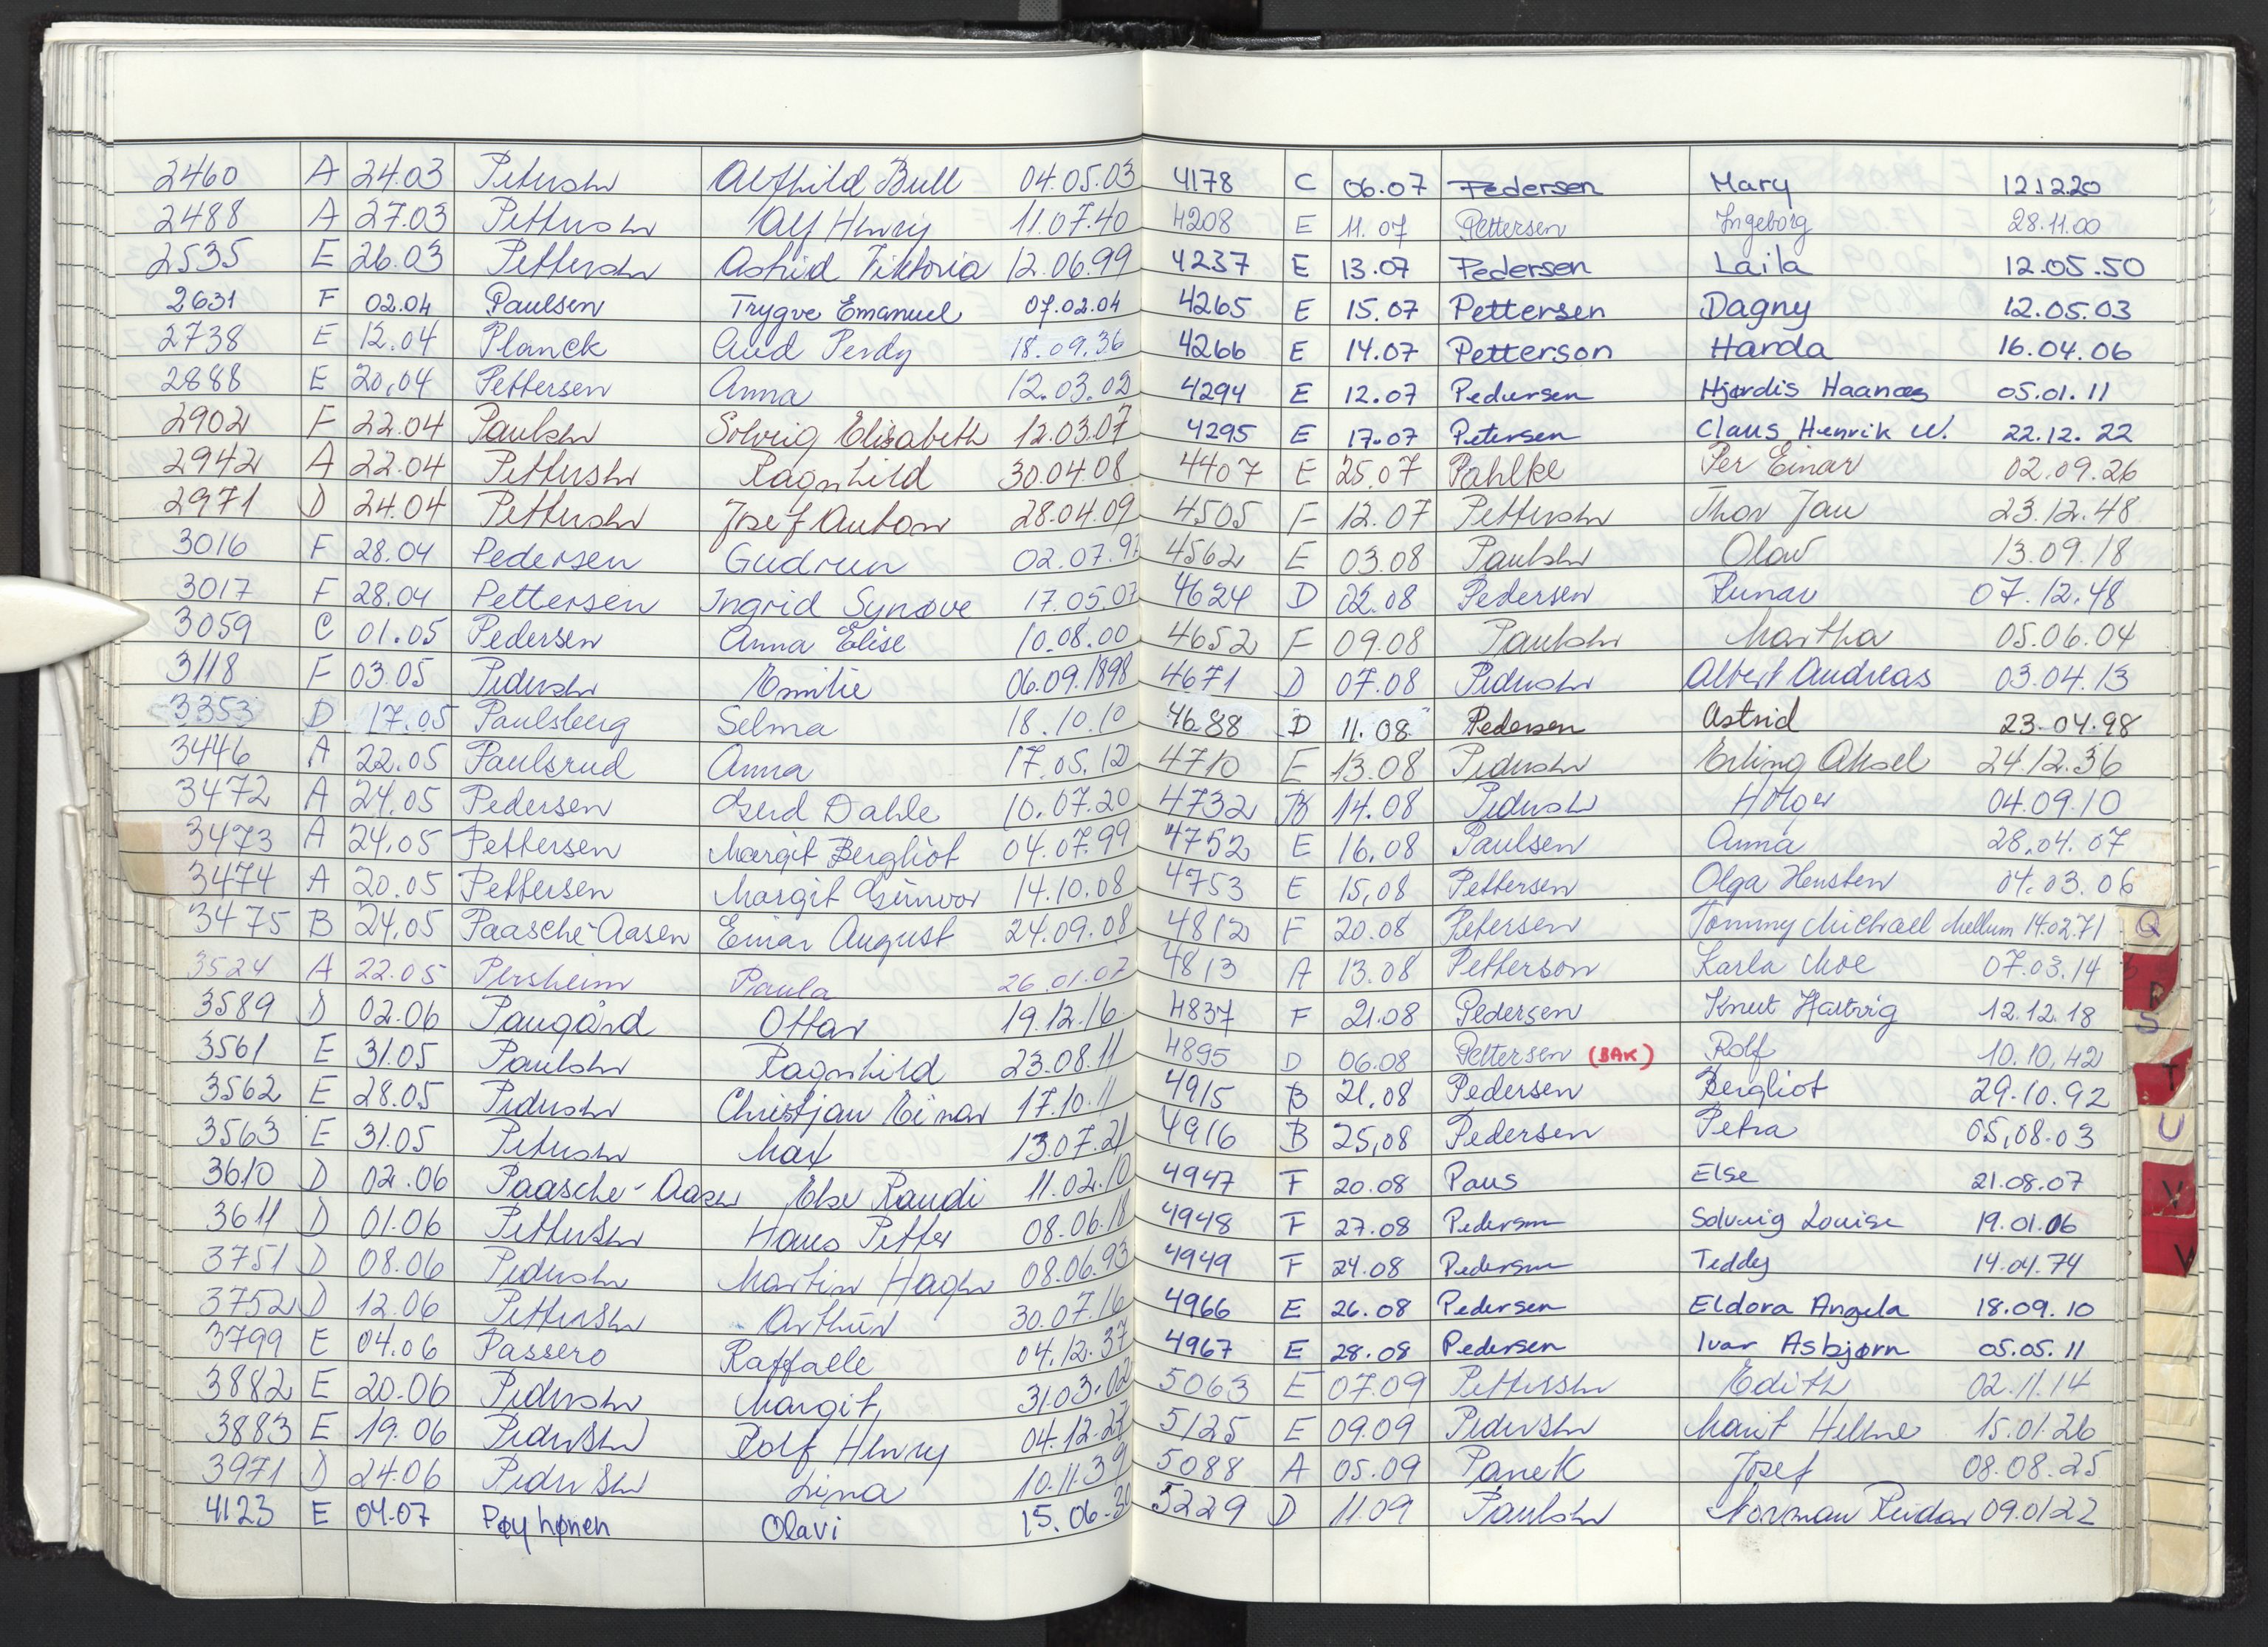 2460 A 24.03 Petersen Alfhild Bull 04.05.03
2488 A 27.03 Pettersen Alf Henry 11.07.40
2535 E 26.03 Pettersen Astrid Viktoria 12.06.99
2631 F 02.04 Paulsen Trygve Emanuel 07.02.04
2738 E 12.04 Planck Aud Perdy 18.09.36
2888 E 20,04 Pettersen Anna 12.03.02
2902 F 22.04 Paulsen Solveig Elisabeth 12.03.07
2942 A 22.04 Pettersen Ragnhild 30.04.08
2971 D 24.04 Pettersen Josef Anton 28.04.09
3016 F 28.04 Pedersen Gudrun 02.07.97
3017 F 28.04 Pettersen Ingrid Synøve 17.05.07
3059 C 01.05 Pedersen Anna Elise 10.08.00
3118 F 03.05 Pedersen Emilie 06.09.1898
3353 D 17.05 Paulsberg Selma 18.10.10
3446 A 22.05 Paulsrud Anna 17.05.12
3472 A 24.05 Pedersen Gerd Dahle 10.07.20
3473 A 24,05 Pettersen Margit Bergliot 04.07.99
3474 A 20.05 Pettersen Margit Gunvor 14.10.08
3475 B 24,05 Paasche-Aasen Einar August 24.09.08
3524 A 22.05 Persheim Paula 26.01.07
3589 D 02.06 Paugård Ottar 19.12.16
3561 E 31.05 Paulsen Ragnhild 23.08.11
3562 E 28.05 Pedersen Christjan Einar 17.10.11
3563 E 31.05 Petersen Max 13.07.21
3610 D 02.06 Paasche-Aasen Else Randi 11.02.10
3611 D 01.06 Pettersen Hans Petter 08.06.18
3751 D 08.06 Pedersen Martin Hagen 08.06.93
3752 D 12.06 Pettersen Arthur 30.07.16
3799 E 04.06 Passero Raffaelle 04.12.37
3882 E 20.06 Pedersen Margit 31.03.02
3883 E 19.06 Pedersen Rolf Henry 04.12.27
3971 D 24.06 Pedersen Lina 10.11.39
4123 E 04.07 Pøyhønen Olavi 15.06.30
4178 C 06.07 Pedersen Mary 12.12.20
4208 E 11.07 Pettersen Ingeborg 28.11.00
4237 E 13.07 Pedersen Laila 12.05.50
4265 E 15.07 Pettersen Dagny 12.05.03
4266 E 14.07 Petterson Harda 16.04.06
4294 E 12.07 Pedersen Hjørdis Haanæs 05.01.11
4295 E 17.07 Petersen Claus Henrik W. 22.12.22
4407 E 25.07 Pahlke Per Einar 02.09.26
4505 F 12.07 Pettersen Thor Jan 23.12.48
4562 E 03.08 Paulsen Olav 13.09.18
4624 D 02.08 Pedersen Runar 07.12.48
4652 F 09.08 Paulsen Martha 05.06.04
4671 D 07.08 Pedersen Albert Andreas 03.04.13
4688 D 11.08 Pedersen Astrid 23.04.98
4710 E 13.08 Pedersen Erling Aksel 24.12.36
4732 B 14.08 Pedersen Holger 04.09.10
4752 E 16,08 Paulsen Anna 28.04.07
4753 E 15,08 Pettersen Olga Hensten 04.03.06
4812 F 20.08 Petersen Tommy Michael Mellum 14.02.71
Q
4813 A 13.08 Petterson Karla Moe 07.03.14
R
4837 F 21.08 Pedersen Knut Hartvig 12.12.18
S
4895 D 06.08 Pettersen (BAK) Rolf 10.10.42
T
4915 B 21,08 Pedersen Bergliot 29.10.92
4916 B 25,08 Pedersen Petra 05,08.03
U
4947 F 20.08 Paus Else 21.08.07
V
4948 F 27.08 Pedersen Solveig Louise 19.01.06
4949 F 24.08 Pedersen Teddy 14.04.74
4966 E 26.08 Pedersen Eldora Angela 18.09.10
4967 E 28.08 Pedersen Ivar Asbjørn 05.05.11
5063 E 07.09 Pettersen Edith 02.11.14
5125 E 09.09 Pedersen Marit Helene 15.01.26
5088 A 05.09 Panek Josef 08.08.25
5229 D 11.09 Paulsen Norman Reidar 09.01.22